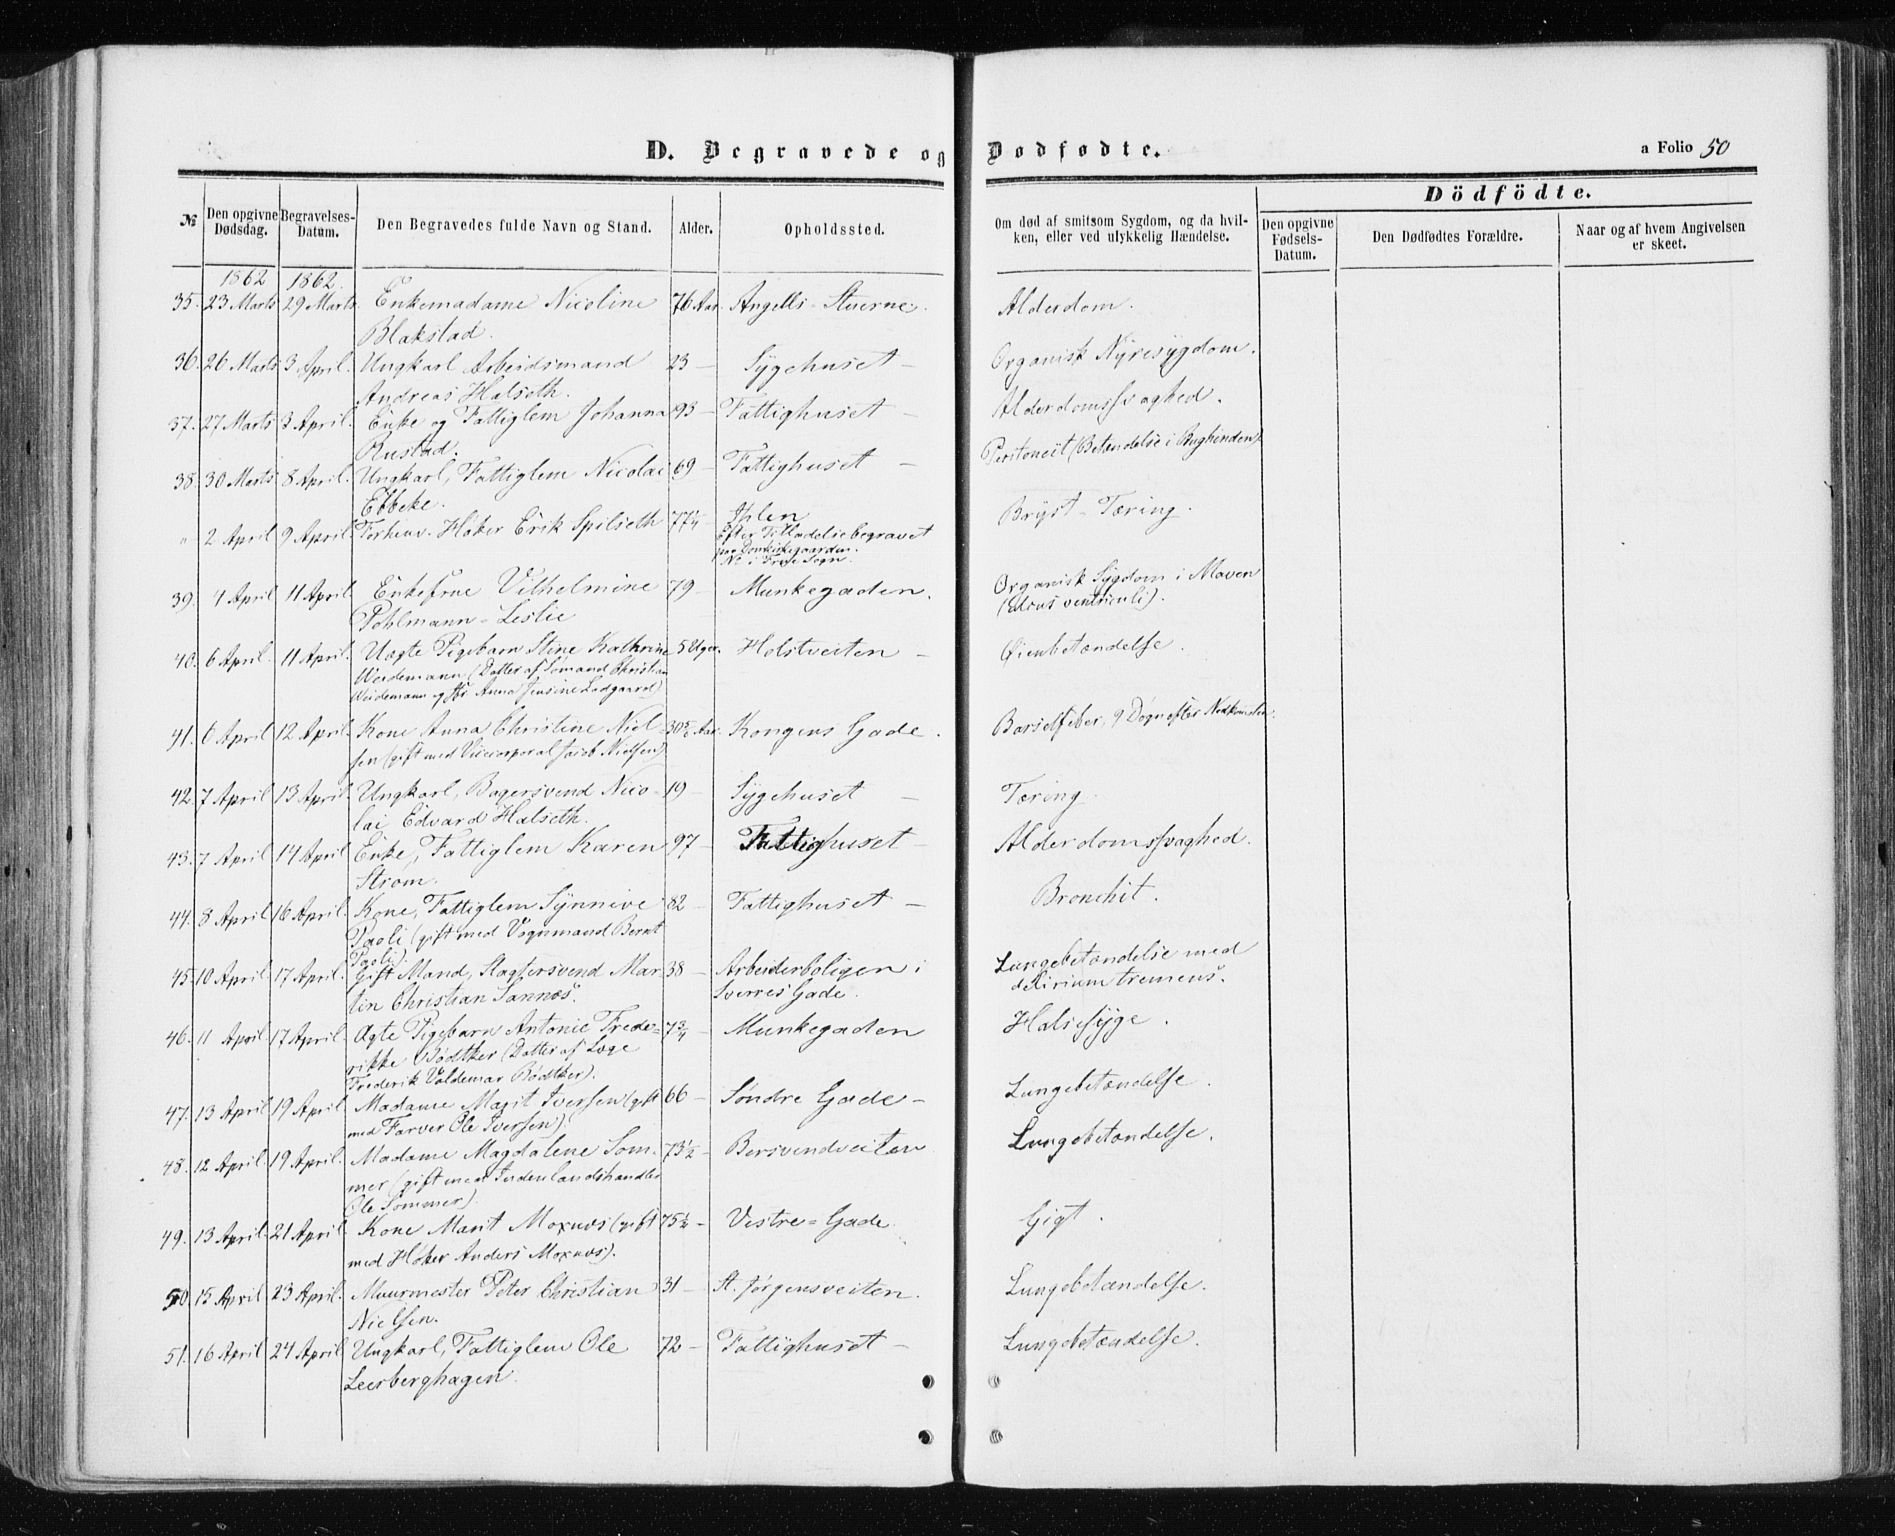 D. Begravede og Dødfødte.
a Folio 50
Dödfödte.
№ Den opgivne Dødsdag. Begravelses-Datum. Den Begravedes fulde Navn og Stand. Alder. Opholdssted. Om død af smitsom Sygdom, og da hvilken, eller ved ulykkelig Hændelse. Den opgivne Fødsels-Datum. Den Dødfødtes Forældre. Naar og af hvem Angivelsen er skeet.
1862 1862.
35. 23 Marts 29 Marts. Enkemadame Nicoline 76 Aar. Angells Stuerne. Alderdom.
Blakstad.
36. 26 Marts 3 April. Ungkarl Arbeidsmand 23 — Sygehuset — Organisk Nyresygdom.
Andreas Halseth.
37. 27 Marts 3 April. Enke og Fattiglem Johanna 93 — Fattighuset — Alderdomssvaghed.
Rustad.
38. 30 Marts 8 April. Ungkarl, Fattiglem Nicolai 69 — Fattighuset — Peritoneit (Betændelse i Bughinden).
Ebbeke.
" 2 April 9 April. Forhenv. Høker Erik Spilseth 77¼ — Ihlen Bryst-Tæring.
Efter Tilladelse begravet
paa Domkirkegaarden.
No i Frue Sogn.
39. 4 April 11 April Enkefrue Vilhelmine 79 — Munkegaden. Organisk Sygdom i Maven
Pohlmann-Leslie (ulcus ventriculi).
40. 6 April. 11 April. Uægte Pigebarn Stine Kathrine 5 Uger. Holstveiten — Øienbetændelse.
Weidemann (Datter af Sömand Christian
Weidemann og Anna Jensine Ladgaard)
41. 6 April 12 April. Kone Anna Christine Niel- 30 Aar. Kongens Gade. Barselfeber, 9 Døgn efter Nedkomsten.
sen (gift med Vicecorporal Jacob Nielsen)
42. 7 April 13 April. Ungkarl, Bagersvend Nico- 19 — Sygehuset — Tæring.
lai Edvard Halseth.
43. 7 April 14 April Enke, Fattiglem Karen 97 — Fattighuset — Alderdomssvaghed.
Strøm.
44. 8 April 16 April. Kone, Fattiglem Synnive 82 — Fattighuset — Bronchit.
Paoli (gift med Vognmand Bernt
Paoli).
45. 10 April. 17 April. Gift Mand, Slagtersvend Mar- 38 — Arbeiderboligen i Lungebetændelse med
tin Christian Sannæs. Sverres Gade. delirium tremens.
46. 11 April 17 April. Ægte Pigebarn Antonie Frede- 7¾ — Munkegaden Halssyge.
rikke Bødtker (Datter af Læge
Frederik Valdemar Bødtker).
47. 13 April 19 April. Madame Marit Iversen (gift 66 — Søndre Gade — Lungebetændelse.
med Farver Ole Iversen).
48. 12 April. 19 April. Madame Magdalene Som- 73½ — Borsvendveiten Lungebetændelse.
mer (gift med Indenlandshandler
Ole Sommer).
49. 13 April. 21 April. Kone Marit Moxnæs (gift 75½ — Vestre-Gade. Gigt.
med Høker Anders Moxnæs).
50. 15 April 23 April. Muurmester Peter Christian 31 — St. Jørgensveiten. Lungebetændelse.
Nielsen.
51. 16 April 24 April Ungkarl, Fattiglem Ole 72 — Fattighuset — Lungebetændelse.
Leerberghagen.